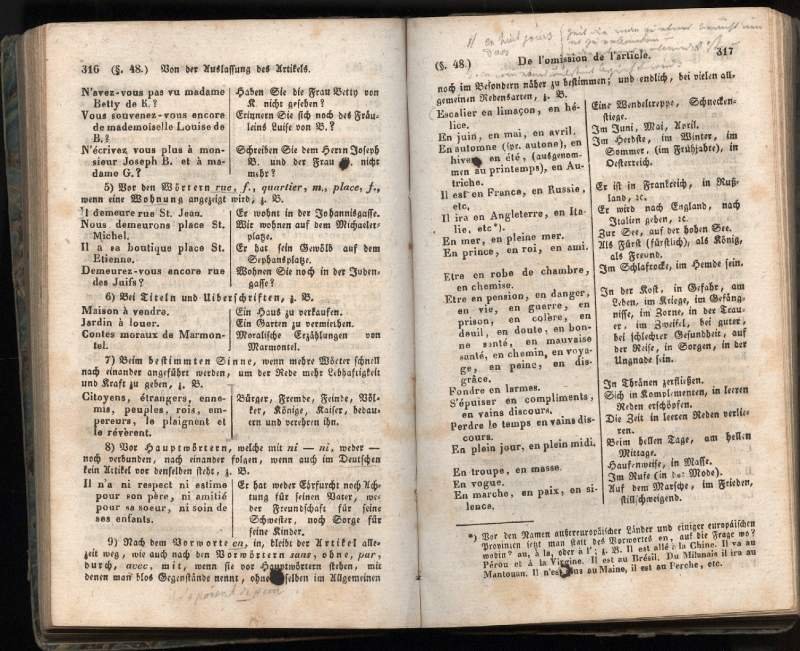 316 (§. 48.) Von der Auslassung des Artikels.
N'avez-vous pas vu madame Betty de K.?
Haben Sie die Frau Betty von K. nicht gesehen?
Vous souvenez-vous encore de mademoiselle Louise de B.?
Erinnern Sie sich noch des Fräuleins Luise von B.?
N'écrivez vous plus à monsieur Joseph B. et à madame G.?
Schreiben Sie dem Herrn Joseph B. und der Frau nicht mehr?
5) Vor den Wörtern rue, f., quartier, m., place, f.,
wenn eine Wohnung angezeigt wird; z. B.
Il demeure rue St. Jean.
Er wohnt in der Johannisgasse.
Nous demeurons place St. Michel.
Wir wohnen auf dem Michaelerplatze.
Il a sa boutique place St. Etienne.
Er hat sein Gewölb auf dem Stephansplatze.
Demeurez-vous encore rue des Juifs?
Wohnen Sie noch in der Judengasse?
6) Bei Titeln und Uiberschriften, z. B.
Maison à vendre.
Ein Haus zu verkaufen.
Jardin à louer.
Ein Garten zu vermiethen.
Contes moraux de Marmontel.
Moralische Erzählungen von Marmontel.
7) Beim bestimmten Sinne, wenn mehre Wörter schnell
nach einander angeführt werden, um der Rede mehr Lebhaftigkeit
und Kraft zu geben, z. B.
Citoyens, étrangers, ennemis, peuples, rois, empereurs, le plaignent et le révèrent.
Bürger, Fremde, Feinde, Völker, Könige, Kaiser, bedauern und verehren ihn.
8) Vor Hauptwörtern, welche mit ni — ni, weder —
noch verbunden, nach einander folgen, wenn auch im Deutschen
kein Artikel vor denselben steht, z. B.
Il n'a ni respect ni estime pour son père, ni amitié pour sa soeur, ni soin de ses enfants.
Er hat weder Ehrfurcht noch Achtung für seinen Vater, weder Freundschaft für seine Schwester, noch Sorge für seine Kinder.
9) Nach dem Vorworte en, in, bleibt der Artikel allezeit
weg, wie auch nach den Vorwörtern sans, ohne, par,
durch, avec, mit, wenn sie vor Hauptwörtern stehen, mit
denen man blos Gegenstände nennt, ohne selben im Allgemeinen
en huit jours
(§. 48.) De l'omission de l'article. 317
noch im Besondern näher zu bestimmen; und endlich, bei vielen allgemeinen
Redensarten, z. B.
Escalier en limaçon, en hélice.
Eine Wendeltreppe, Schneckenstiege.
En juin, en mai, en avril.
Im Juni, Mai, April.
En automne (spr. autone), en hiver, en été, (ausgenommen au printemps), en Autriche.
Im Herbste, im Winter, im Sommer, (im Frühjahre), in Oesterreich.
Il est en France, en Russie, etc.
Er ist in Frankreich, in Rußland, ꝛc.
Il ira en Angleterre, en Italie, etc*).
Er wird nach England, nach Italien gehen, ꝛc.
En mer, en pleine mer.
Zur See, auf der hohen See.
En prince, en roi, en ami.
Als Fürst (fürstlich), als König, als Freund.
Etre en robe de chambre, en chemise.
Im Schlafrocke, im Hemde sein.
Etre en pension, en danger, en vie, en guerre, en prison, en colère, en deuil, en doute, en bonne santé, en mauvaise santé, en chemin, en voyage, en peine, en disgrâce.
In der Kost, in Gefahr, am Leben, im Kriege, im Gefängnisse, im Zorne, in der Trauer, im Zweifel, bei guter, bei schlechter Gesundheit, auf der Reise, in Sorgen, in der Ungnade sein.
Fondre en larmes.
In Thränen zerfließen.
S'épuiser en compliments, en vains discours.
Sich in Komplementen, in leeren Reden erschöpfen.
Perdre le temps en vains discours.
Die Zeit in leeren Reden verlieren.
En plein jour, en plein midi.
Beim hellen Tage, am hellen Mittage.
En troupe, en masse.
Haufenweise, in Masse.
En vogue.
Im Rufe (in der Mode).
En marche, en paix, en silence.
Auf dem Marsche, im Frieden, stillschweigend.
*) Vor den Namen außereuropäischer Länder und einiger europäischen
Provinzen setzt man statt des Vorwortes en, auf die Frage wo?
wohin? au, à la, oder à l'; z. B. Il est allé à la Chine. Il va au
Pérou et à la Virgine. Il est au Brésil. Du Milanais il ira au
Mantouan. Il n'est plus au Maine, il est au Perche, etc.